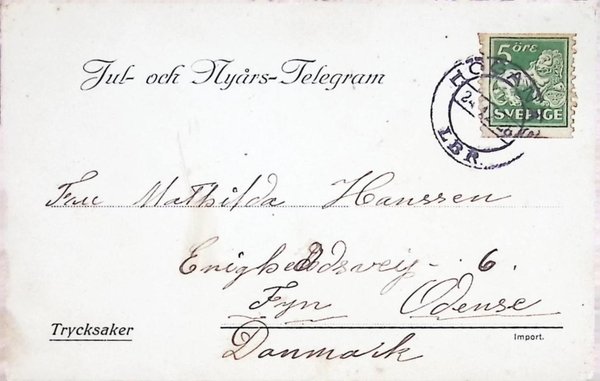 5 ÖRE
SVERIGE
LBR.
Jul- och Nyårs-Telegram
Fru Mathilda Hanssen
Enighedsvej - 6.
Fyn Odense
Trycksaker
Import.
Danmark